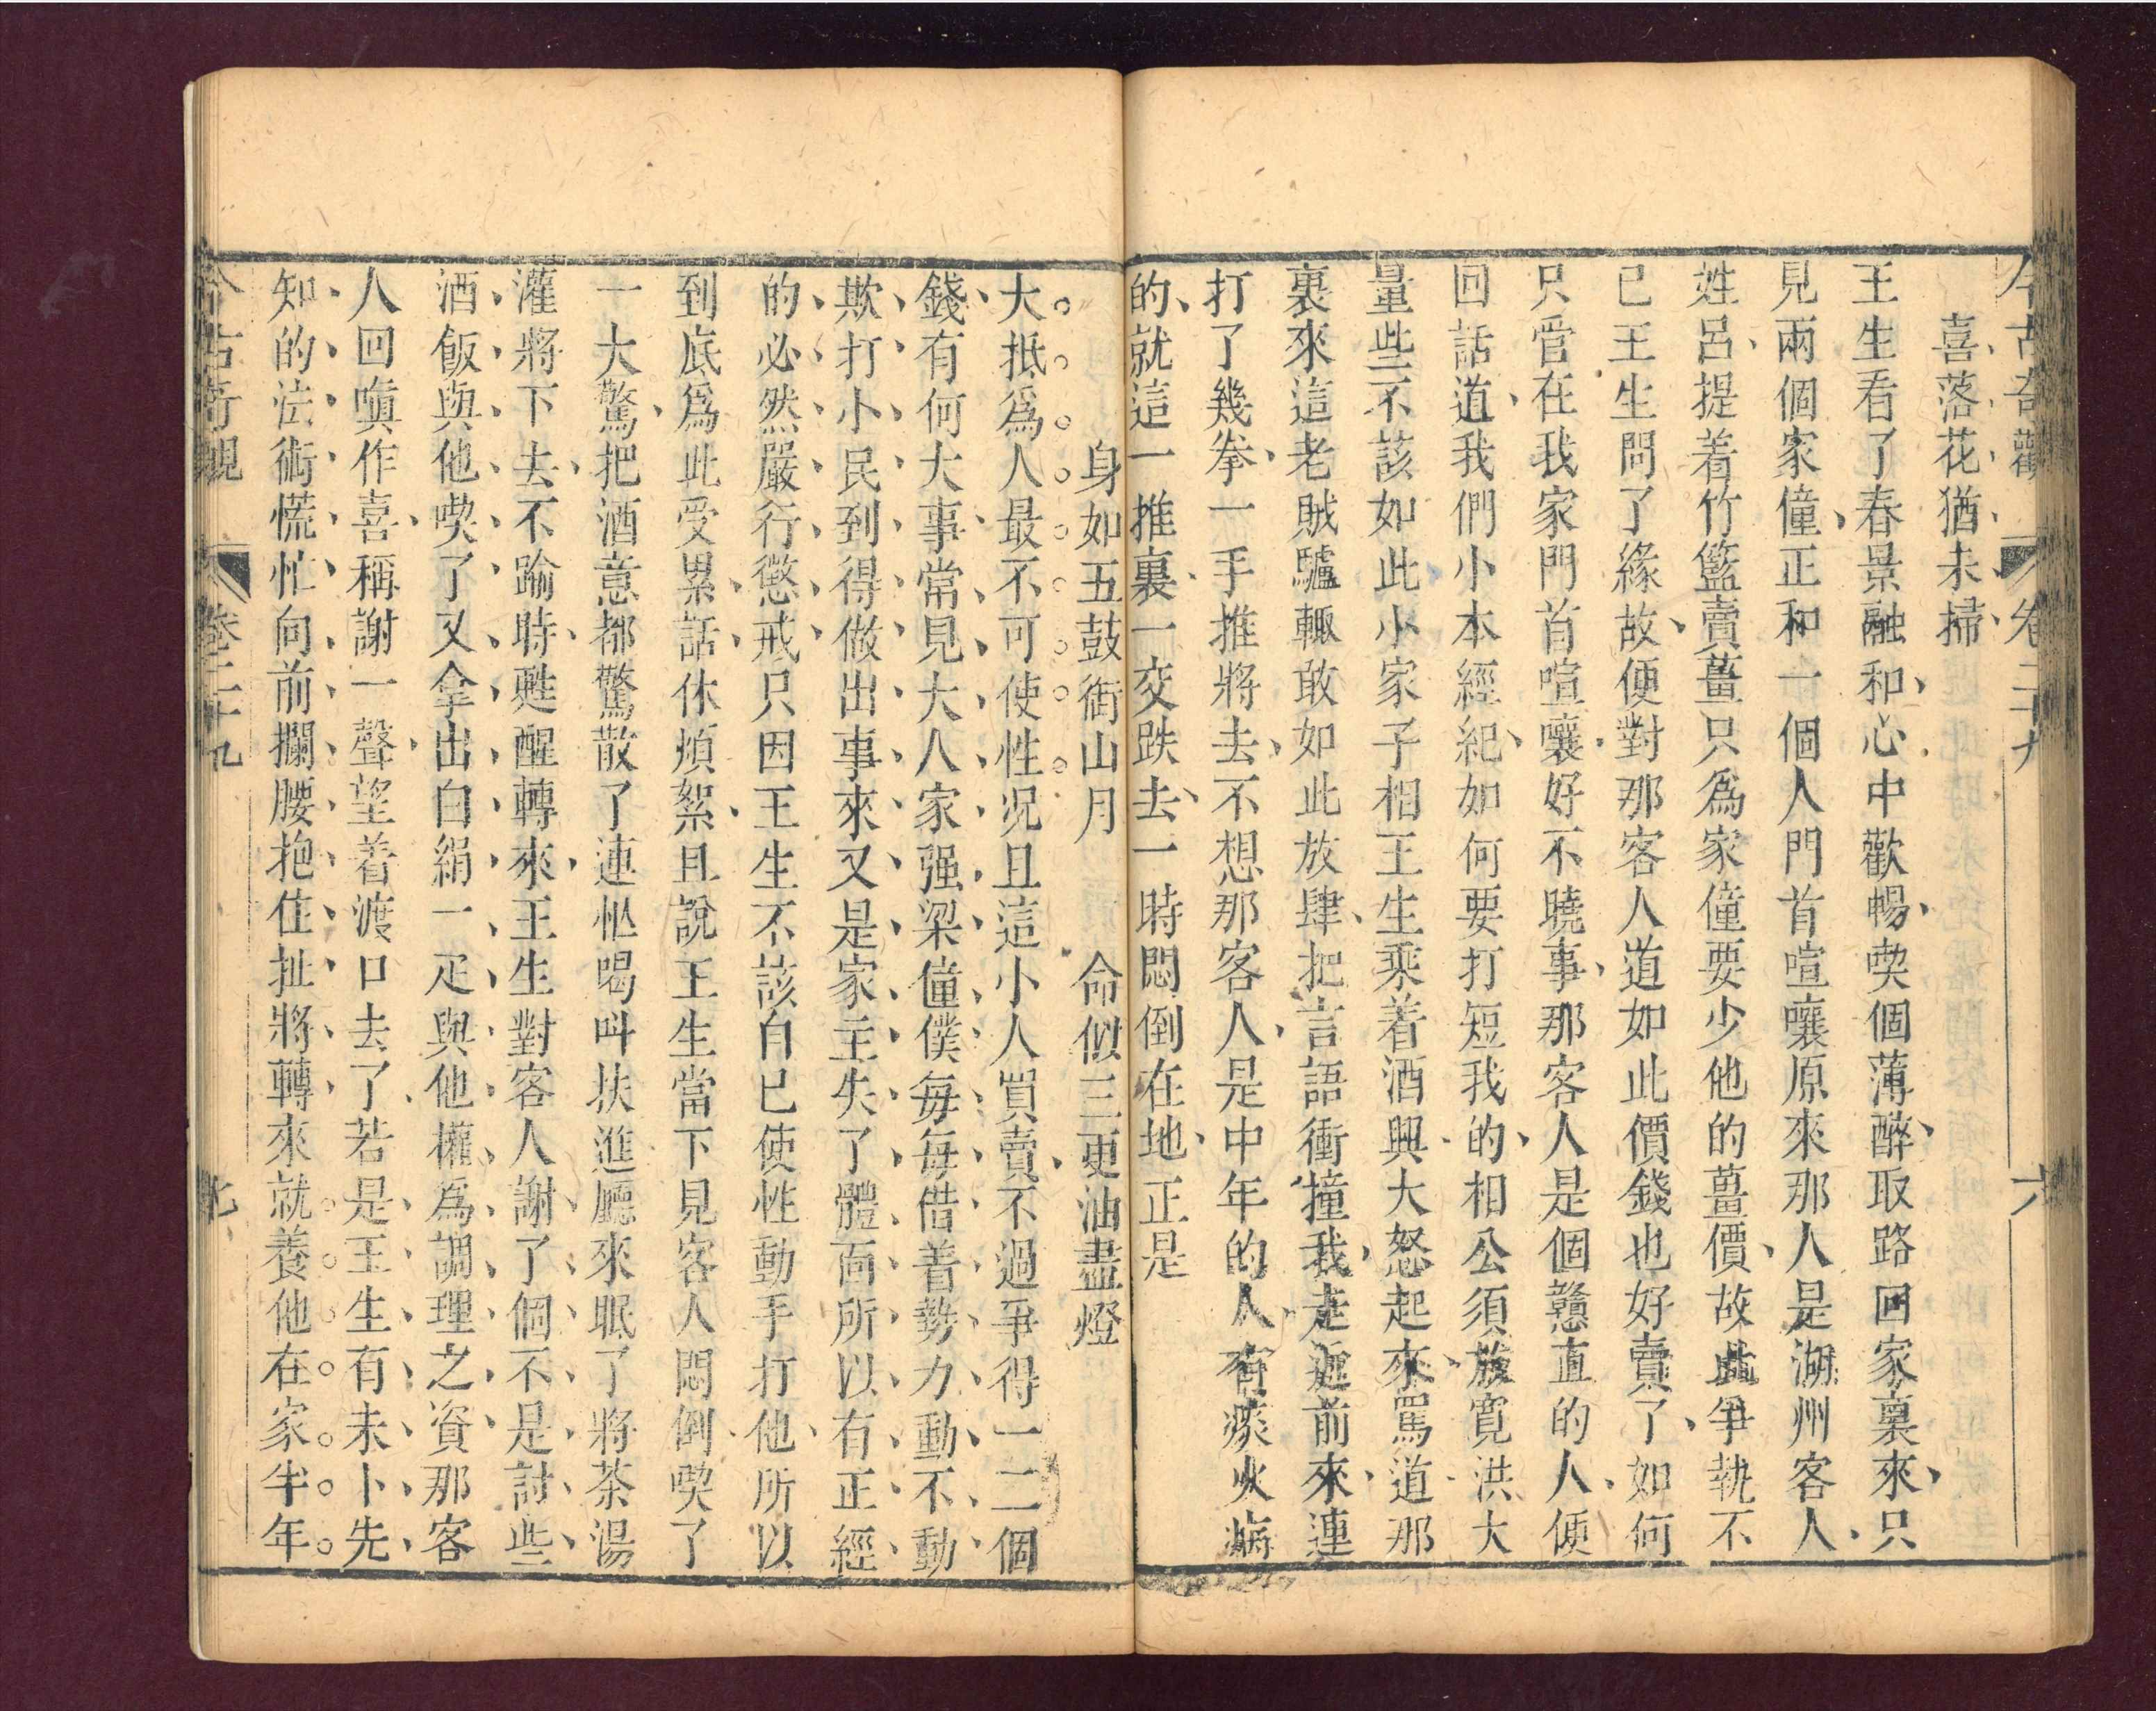 今古奇觀 卷二十九 六
喜落花猶未掃
王生看了春景融和心中歡暢喫個薄醉取路回家裏來只
見兩個家僮正和一個人門首喧嚷原來那人是湖州客人
姓呂提着竹籃賣薑只爲家僮要少他的薑價故此爭執不
已王生問了緣故便對那客人道如此價錢也好賣了如何
只管在我家門首喧嚷好不曉事那客人是個戇直的人便
回話道我們小本經紀如何要打短我的相公須放寬洪大
量些不該如此小家子相王生乘着酒興大怒起來罵道那
裏來這老賊驢輙敢如此放肆把言語衝撞我走近前來連
打了幾拳一手推將去不想那客人是中年的人有痰火病
的就這一推裏一交跌去一時悶倒在地正是
身如五鼓啣山月 命似三更油盡燈
大抵爲人最不可使性况且這小人買賣不過爭得一二個
錢有何大事常見大人家强梁僮僕每每借着勢力動不動
欺打小民到得做出事來又是家主失了體面所以有正經
的必然嚴行懲戒只因王生不該自已使性動手打他所以
到底爲此受累話休煩絮且說王生當下見客人悶倒喫了
一大驚把酒意都驚散了連忙喝叫扶進廳來眠了將茶湯
灌將下去不踰時甦醒轉來王生對客人謝了個不是討些
酒飯與他喫了又拿出白絹一疋與他權爲調理之資那客
人回嗔作喜稱謝一聲望着渡口去了若是王生有未卜先
知的法術慌忙向前攔腰抱住扯將轉來就養他在家半年
今古奇觀 卷二十九